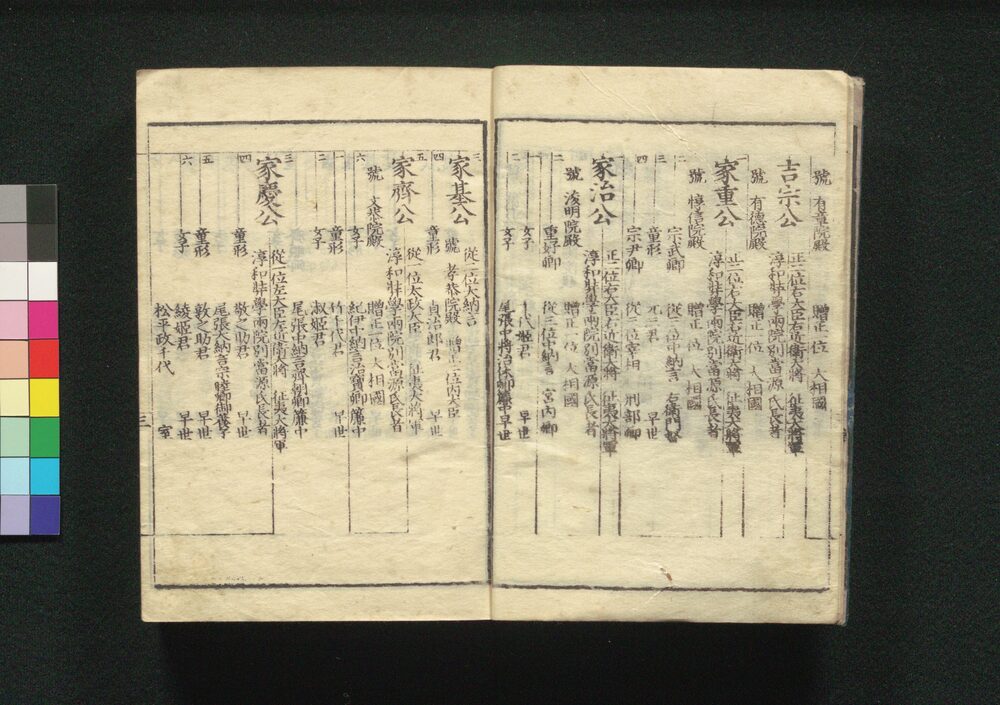 號 有章院殿 贈正一位 大相國
吉宗公 正二位右大臣右近衛大將 征夷大將軍
淳和弉學兩院別當源氏長者
號 有德院殿 贈正一位 大相國
一 家重公 正二位右大臣右近衛大將 征夷大將軍
淳和弉學兩院別當源氏長者
號 惇信院殿 贈正一位 大相國
二 宗武卿 從三位中納言 右衛門督
三 童形 源三君 早世
四 宗尹卿 從三位宰相 刑部卿
一 家治公 正二位右大臣右近衛大將 征夷大將軍
淳和弉學兩院別當源氏長者
號 浚明院殿 贈正一位 大相國
二 重好卿 從三位中納言 宮內卿
一 女子 千代姬君 早世
二 女子 尾張中將治休卿簾中 早世
三 家基公 從二位大納言
號 孝恭院殿 贈正二位內大臣
四 童形 貞治郎君 早世
五 家齊公 從一位太政大臣 征夷大將軍
淳和弉學兩院別當源氏長者
號 文恭院殿 贈正一位 大相國
六 女子 紀伊中納言治寶卿 簾中
一 童形 竹千代君 早世
二 女子 淑姬君
尾張中納言齊朝卿 簾中
三 家慶公 從一位左大臣左近衛大將 征夷大將軍
淳和弉學兩院別當源氏長者
四 童形 敬之助君 早世
尾張大納言宗睦卿御養子
五 童形 敦之助君 早世
六 女子 綾姬君 早世
松平政千代 室
三